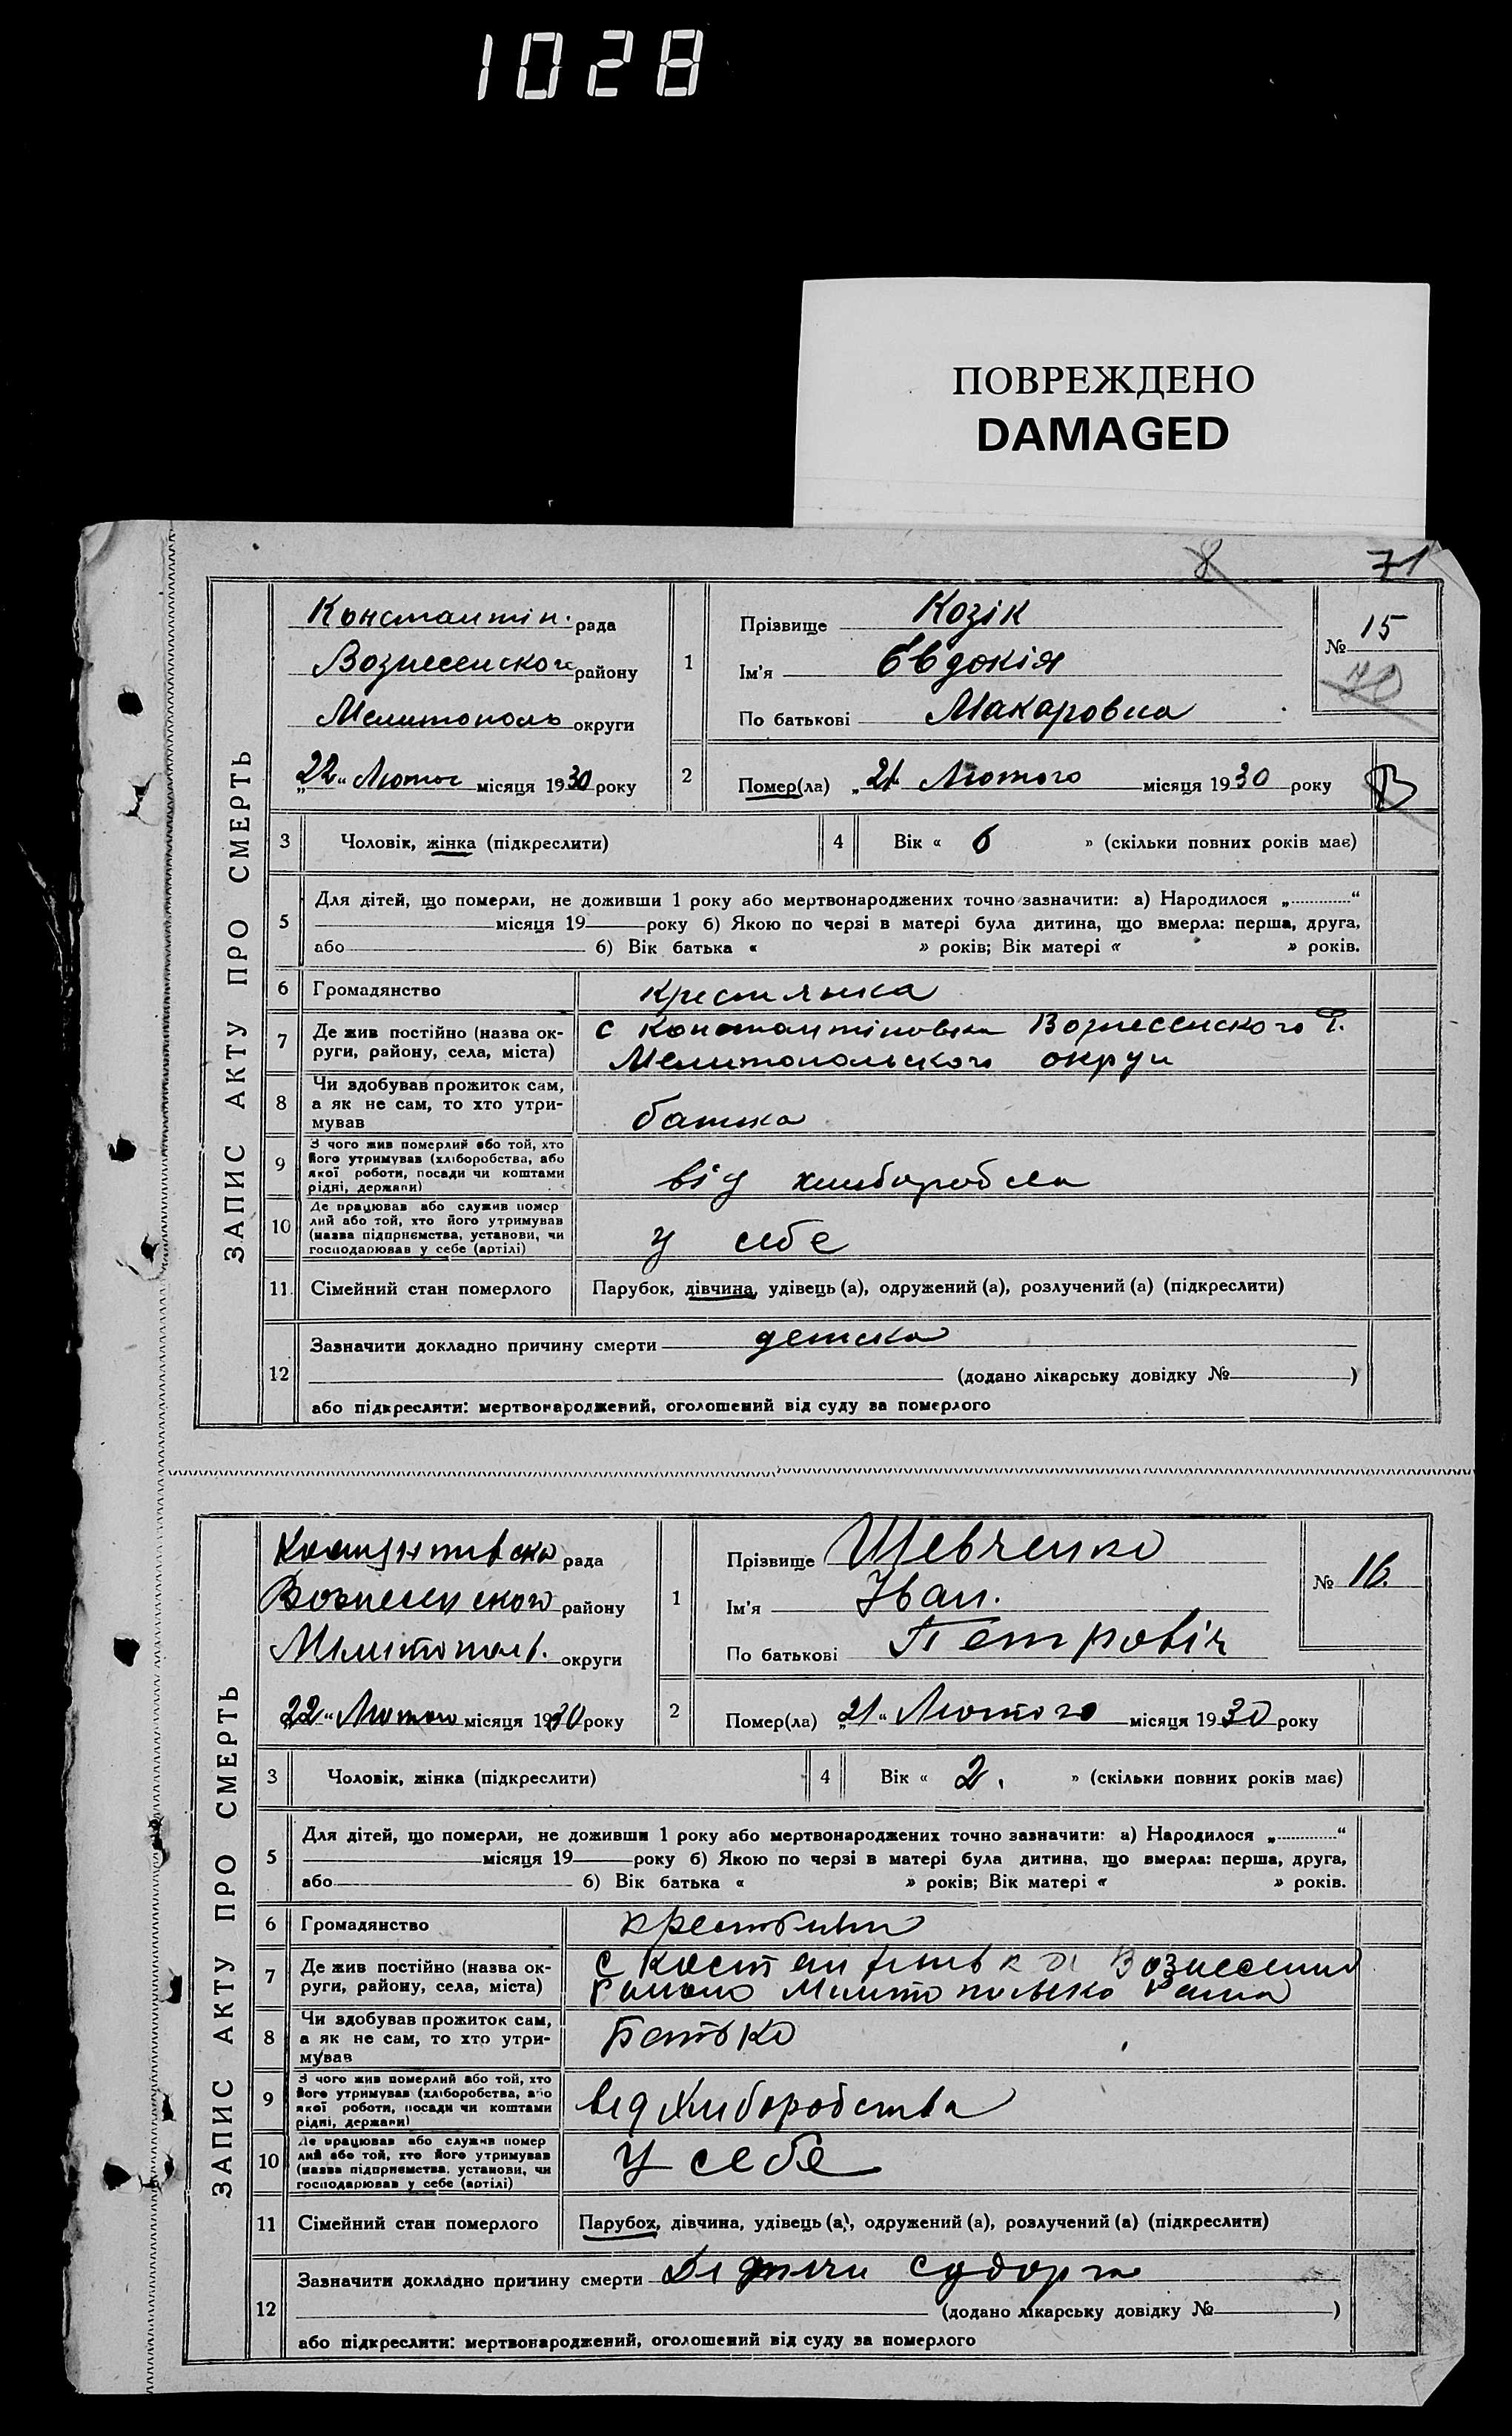 1028
ПОВРЕЖДЕНО
DAMAGED
8 71
ЗАПИС АКТУ ПРО СМЕРТЬ
Константін. рада
Вознесенского району
Мелитополь округи
„22“ Лютого місяця 1930 року
1 Прізвище Козік
Ім'я Євдокія
По батькові Макаровна
№ 15
70
2 Помер(ла) „21 Лютого місяця 1930 року
В
3 Чоловік, жінка (підкреслити) 4 Вік « 6 » (скільки повних років має)
5 Для дітей, що померли, не доживши 1 року або мертвонароджених точно зазначити: а) Народилося „ “
місяця 19 року б) Якою по черзі в матері була дитина, що вмерла: перша, друга,
або б) Вік батька « » років; Вік матері « » років.
6 Громадянство крестянка
7 Де жив постійно (назва округи, району, села, міста) с Константіновка Вознесенского Р.
Мелитопольского округи
8 Чи здобував прожиток сам,
а як не сам, то хто утри-
мував батька
9 З чого жив померлий або той, хто
його утримував (хліборобства, або
якої роботи, посади чи коштами
рідні, держави) від
10 Де працював або служив помер
лий або той, хто його утримував
(назва підприємства, установи, чи
господарював у себе (артілі) у себе
11. Сімейний стан померлого Парубок, дівчина, удівець (а), одружений (а), розлучений (а) (підкреслити)
12 Зазначити докладно причину смерти детска
(додано лікарську довідку № )
або підкреслити: мертвонароджений, оголошений від суду за померлого
ЗАПИС АКТУ ПРО СМЕРТЬ
рада
Вознесенского району
Мелитопол. округи
„22“ Лютого місяця 1930 року
1 Прізвище Шевченко
Ім'я Іван.
По батькові Петровіч
№ 16.
2 Помер(ла) „21“ Лютого місяця 1930 року
3 Чоловік, жінка (підкреслити) 4 Вік « 2. » (скільки повних років має)
5 Для дітей, що померли, не доживши 1 року або мертвонароджених точно зазначити: а) Народилося „ “
місяця 19 року б) Якою по черзі в матері була дитина, що вмерла: перша, друга,
або б) Вік батька « » років; Вік матері « » років.
6 Громадянство
7 Де жив постійно (назва ок-
руги, району, села, міста) с
8 Чи здобував прожиток сам,
а як не сам, то хто утри-
мував Батько
9 З чого жив померлий або той, хто
його утримував (хліборобства, або
якої роботи, посади чи коштами
рідні, держави) від Хлиборобства
10 Де працював або служив помер
лий або той, хто його утримував
(назва підприємства, установи, чи
господарював у себе (артілі) У себе
11 Сімейний стан померлого Парубок, дівчина, удівець (а), одружений (а), розлучений (а) (підкреслити)
12 Зазначити докладно причину смерти судорга
(додано лікарську довідку № )
або підкреслити: мертвонароджений, оголошений від суду за померлого